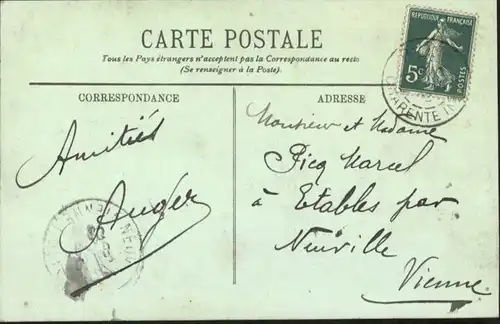 CARTE POSTALE
Tous les Pays étrangers n'acceptent pas la Correspondance au recto
(Se renseigner à la Poste).
CORRESPONDANCE
Amitiés
Auger
ADRESSE
Monsieur et Madame
Picq Marcel
à Etables par
Neuville
Vienne
REPUBLIQUE FRANÇAISE
5c
POSTES
CHARENTE